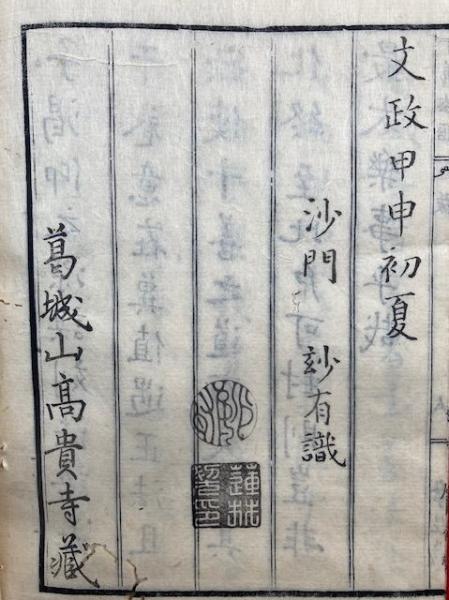 文政甲申初夏
沙門 玅有識
葛城山高貴寺藏